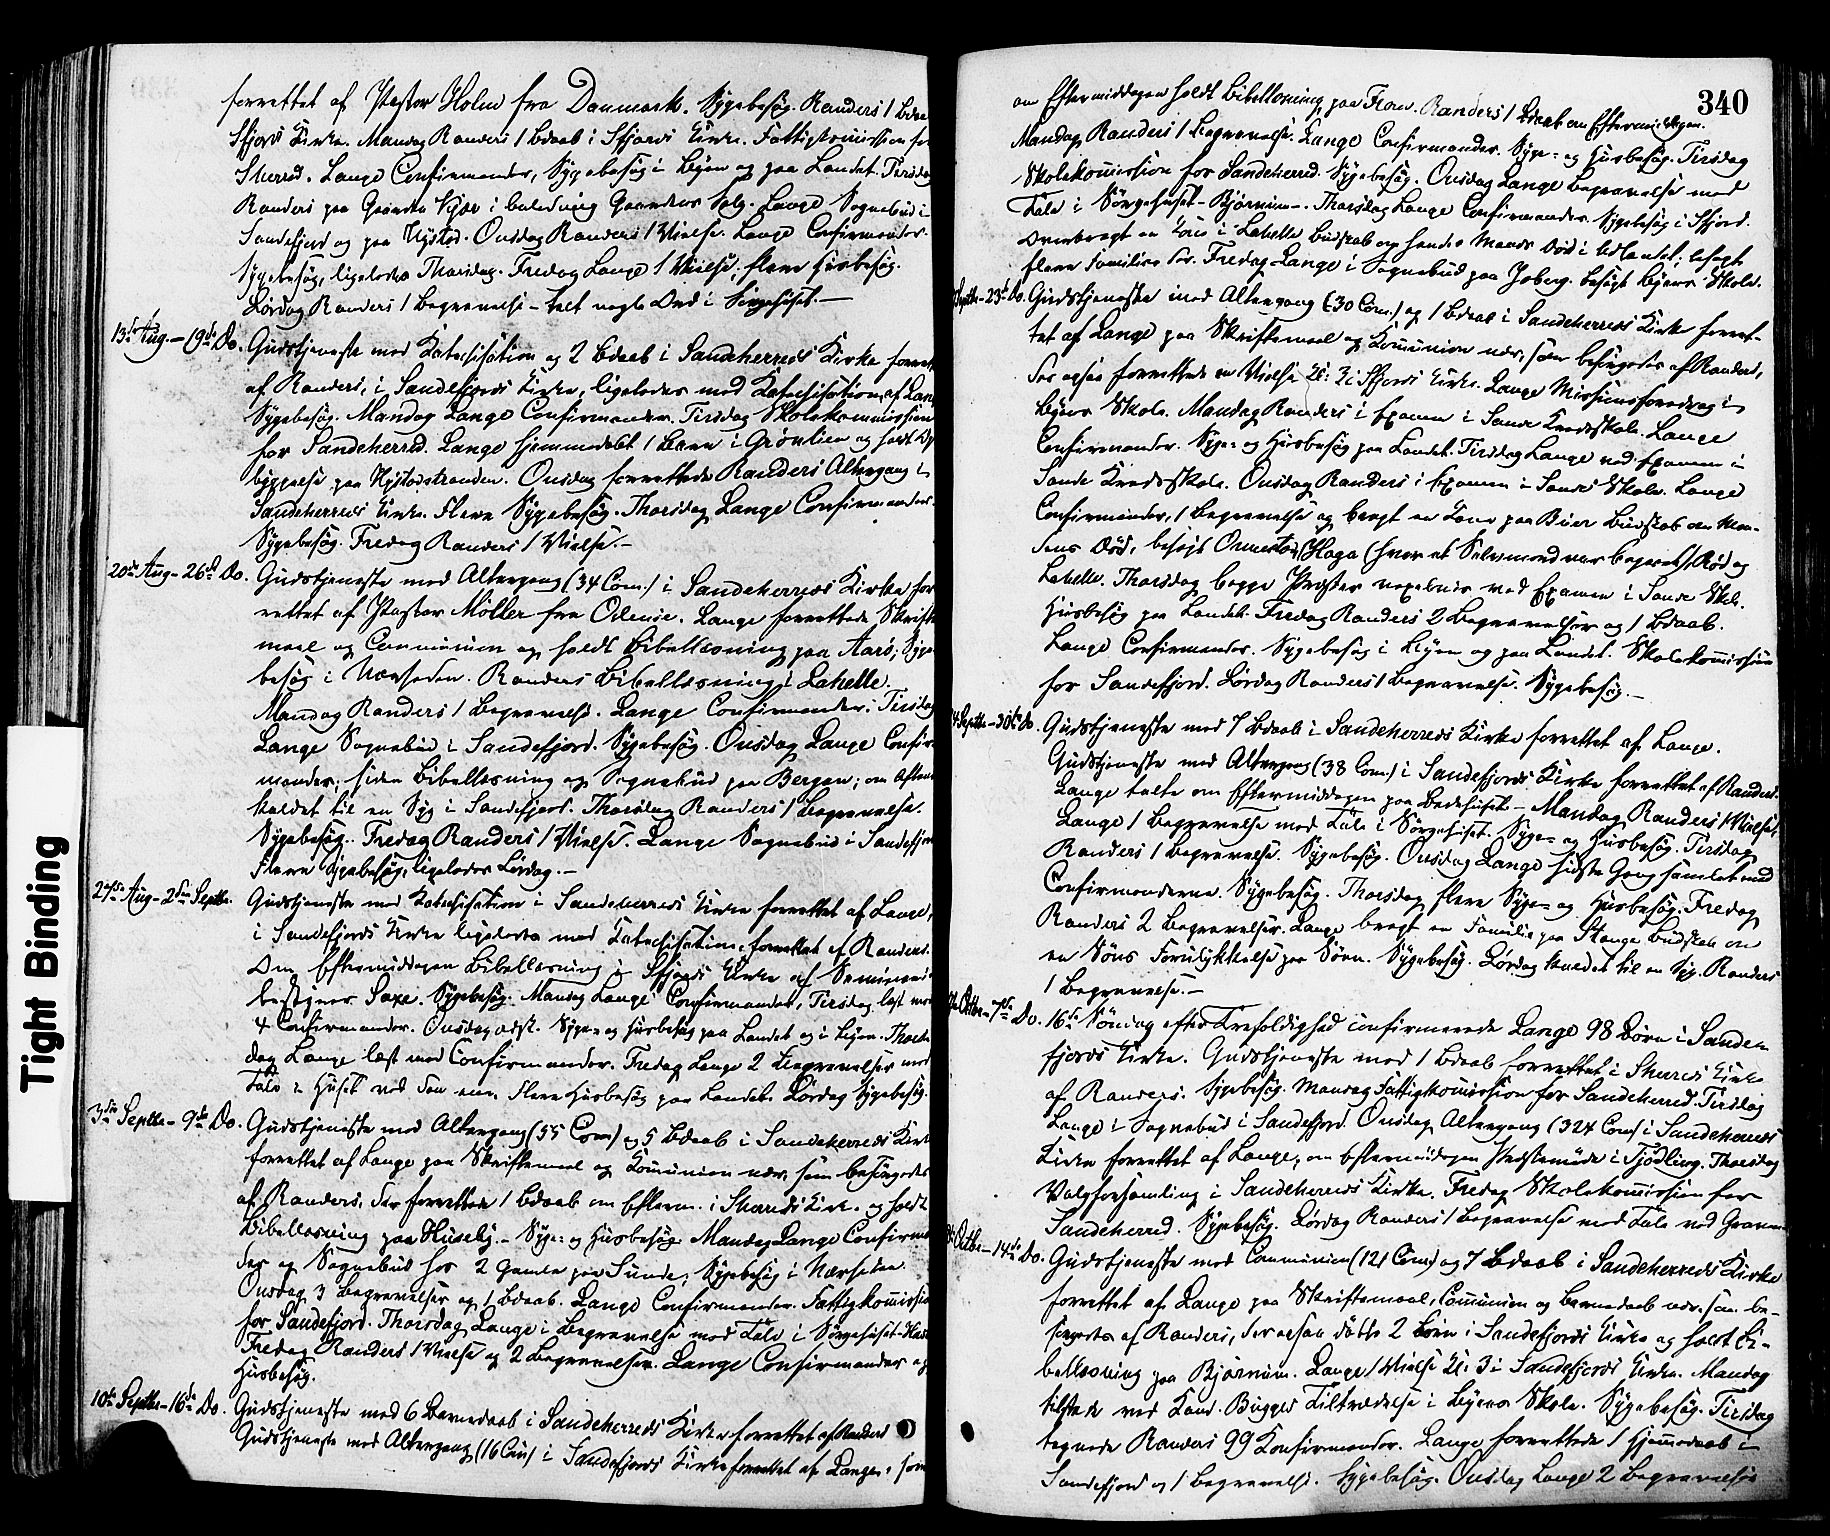 forrettet af Pastor Holm fra Danmark. Sygebesøg. Randers 1 Bdaab
Sfjords Kirke. Mandag Randers 1 Bdaab i Sfjords Kirke. Fattigkomission for
Sherred. Lange Confirmander, Sygebesøg i Byen og paa Landet. Tirsdag
Randers paa Gaarden Kjær i Anledning Gaardens Salg. Lange Sognebud i
Sandefjord og paa Nystad. Onsdag Randers 1 Vielse. Lange Confirmander.
Sygebesøg, ligeledes Thorsdag. Fredag Lange 1 Vielse; flere Husbesøg.
Lørdag Randers 1 Begravelse – talt nogle Ord i Sørgehuset. —
13de Aug. – 19de Do. Gudstjeneste med Katechisation og 2 Bdaab i Sandeherreds Kirke forrettet
af Randers, i Sandefjords Kirke, ligeledes med Katechisation, af Lange
Sygebesøg. Mandag Lange Confirmander. Tirsdag Skolekommission
for Sandeherred. Lange hjemmedøbt 1 Barn i Grønlien og holdt Op
byggelse paa Nystadstranden. Onsdag forrettede Randers Altergang i
Sandeherreds Kirke. Flere Sygebesøg. Thorsdag Lange Confirmander.
Sygebesøg. Fredag Randers 1 Vielse. —
20de Aug – 26de Do. Gudstjeneste med Altergang (34 Com.) i Sandeherreds Kirke for
rettet af Pastor Möller fra Odense. Lange forrettede Skrifte
maal og Communion og holdt Bibellæsning paa Aarø; Syge
besøg i Nærheden. Randers Bibellæsning i Lahelle.
Mandag Randers 1 Begravelse. Lange Confirmander. Tirsdag
Lange Sognebud i Sandefjord. Sygebesøg. Onsdag Lange Confir
mander, siden Bibellæsning og Sognebud paa Bergan; om Aftenen
kaldet til en Syg i Sandefjord. Thorsdag Randers 1 Begravelse.
Sygebesøg. Fredag Randers 1 Vielse. Lange Sognebud i Sandefjord
Flere Sygebesøg, ligeledes Lørdag. —
27de Aug – 2den Septbr. Gudstjeneste med Katechisation i Sandeherreds Kirke forrettet af Lange,
i Sandefjords Kirke ligeledes med Katechisation, forrettet af Randers.
Om Eftermiddagen Bibellæsning i Sfjords Kirke af Seminarie
bestyrer Saxe. Sygebesøg. Mandag Lange Confirmander, Tirsdag læst med
4 Confirmander. Onsdag Syge- og Husbesøg paa Landet og i Byen. Thors
dag Lange læst med Confirmander. Fredag Lange 2 Begravelser med
Tale i Huset ved den ene. Flere Husbesøg paa Landet. Lørdag Sygebesøg.
3die Septbr – 9de Do. Gudstjeneste med Altergang (55 Com) og 5 Bdaab i Sandeherreds Kirke
forrettet af Lange paa Skriftemaal og Komunion nær, som besørgedes
af Randers, der forrettede 1 Bdaab om Efterm. i Sherreds Kirke og holdt
Bibellæsning paa Huseby. – Syge- og Husbesøg. Mandag Lange Confirman
der og Sognebud hos 2 Gamle paa Sunde, Sygebesøg i Nærheden.
Onsdag 3 Begravelser og 1 Bdaab. Lange Confirmander. Fattigkomission
for Sandefjord. Thorsdag Lange i Begravelse med Tale i Sørgehuset
Fredag Randers 1 Vielse og 2 Begravelser. Lange Confirmander og
Husbesøg.
10de Septbr – 16de Do. Gudstjeneste med 6 Barnedaab i Sandeherreds Kirke forrettet af Randers
Gudstjeneste med Altergang (16 Com) i Sandefjords Kirke forrettet af Lange, som
340
om Eftermiddagen holdt Bibellæsning paa Floen. Randers 1 Bdaab om Eftermiddagen.
Mandag Randers 1 Begravelse. Lange Confirmander. Syge- og Husbesøg. Tirsdag
Skolekomission for Sandeherred. Sygebesøg. Onsdag Lange Begravelse med
Tale i Sørgehuset – Bjørnum –. Thorsdag Lange Confirmander. Sygebesøg i Sfjord.
Overbragt en Kone i Lahelle Budskab om hendes Mands Død i Udlandet; besøgt
flere Familier der. Fredag Lange i Sognebud paa Joberg. besøgt Byens Skole.
Septbr – 23de Do. Gudstjeneste med Altergang (30 Com.) og 1 Bdaab i Sandeherreds Kirke forret-
tet af Lange paa Skriftemaal og Komunion nær, som besørgedes af Randers,
der ogsaa forrettede en Vielse Kl: 3 i Sfjords Kirke. Lange Missionsforedrag i
Byens Skole. Mandag Randers i Examen i Sande Kredsskole. Lange
Confirmander. Syge- og Husbesøg paa Landet. Tirsdag Lange ved Examen i
Sande Kredsskole. Onsdag Randers i Examen i Sande Skole. Lange
Confirmander, 1 Begravelse og bragt en Kone paa Buer Budskab om Man-
dens Død, besøgt Ormestad, Haga (hvor et Selvmord var begaaet), Rød og
Lahelle. Thorsdag begge Præster vexelvis ved Examen i Sande Skl.
Husbesøg paa Landet. Fredag Randers 2 Begravelser og 1 Bdaab.
Lange Confirmander. Sygebesøg i Byen og paa Landet. Skolekomission
for Sandefjord. Lørdag Randers 1 Begravelse. Sygebesøg. —
Septbr – 30te Do. Gudstjeneste med 7 Bdaab i Sandeherreds Kirke forrettet af Lange.
Gudstjeneste med Altergang (38 Com.) i Sandefjords Kirke forrettet af Randers.
Lange talte om Eftermiddagen paa Bedehuset. – Mandag Randers 1 Vielse.
Lange 1 Begravelse med Tale i Sørgehuset. Syge- og Husbesøg. Tirsdag
Randers 1 Begravelse. Sygebesøg. Onsdag Lange sidste Gang samlet med
Confirmanderne. Sygebesøg. Thorsdag flere Syge- og Husbesøg. Fredag
Randers 2 Begravelser. Lange bragt en Familie paa Stange Budskab om
en Søns Forulykkelse paa Søen. Sygebesøg. Lørdag kaldet til en Syg. Randers
1 Begravelse. —
Octbr – 7de Do. 16de Søndag efter Trefoldighed confirmerede Lange 98 Børn i Sande-
fjords Kirke. Gudstjeneste med 1 Bdaab forrettet i Sherreds Kirke
af Randers. Sygebesøg. Mandag Fattigkomission for Sandeherred. Tirsdag
Lange i Sognebud i Sandefjord. Onsdag Altergang (324 Com) i Sandeherreds
Kirke forrettet af Lange, om Eftermiddagen Præstemøde i Tjødling. Thorsdag
Valgforsamling i Sandeherreds Kirke. Fredag Skolekomission for
Sandeherred. Sygebesøg. Lørdag Randers 1 Begravelse med Tale ved Graven
Octbr – 14de Do. Gudstjeneste med Communion (121 Com) og 7 Bdaab i Sandeherreds Kirke
forrettet af Lange paa Skriftemaal, Communion og Barnedaab nær, som be-
sørgedes af Randers, der ogsaa døbte 2 Børn i Sandefjords Kirke og holdt Bi-
bellæsning paa Bjørnum. Lange 1 Vielse Kl: 3 i Sandefjords Kirke. Mandag
tilstede ved Kand. Bugges Tiltrædelse i Byens Skole. Sygebesøg. Tirsdag
tegnede Randers 99 Konfirmander. Lange forrettede 1 Hjemmedaab i
Sandefjord og 1 Begravelse. Sygebesøg. Onsdag Lange 2 Begravelser
Tight Binding